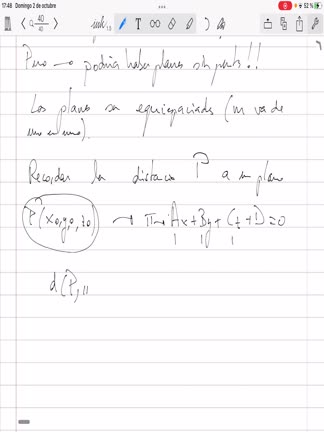 17:48 Domingo 2 de octubre
52 %
40
Pero → podría haber planos sin puntos!!
Los planos son equiespaciados (m va de
uno en uno).
Recordar la distancia P a un plano
P(x0, y0, z0) → π → Ax + By + Cz + D = 0
d(P, π